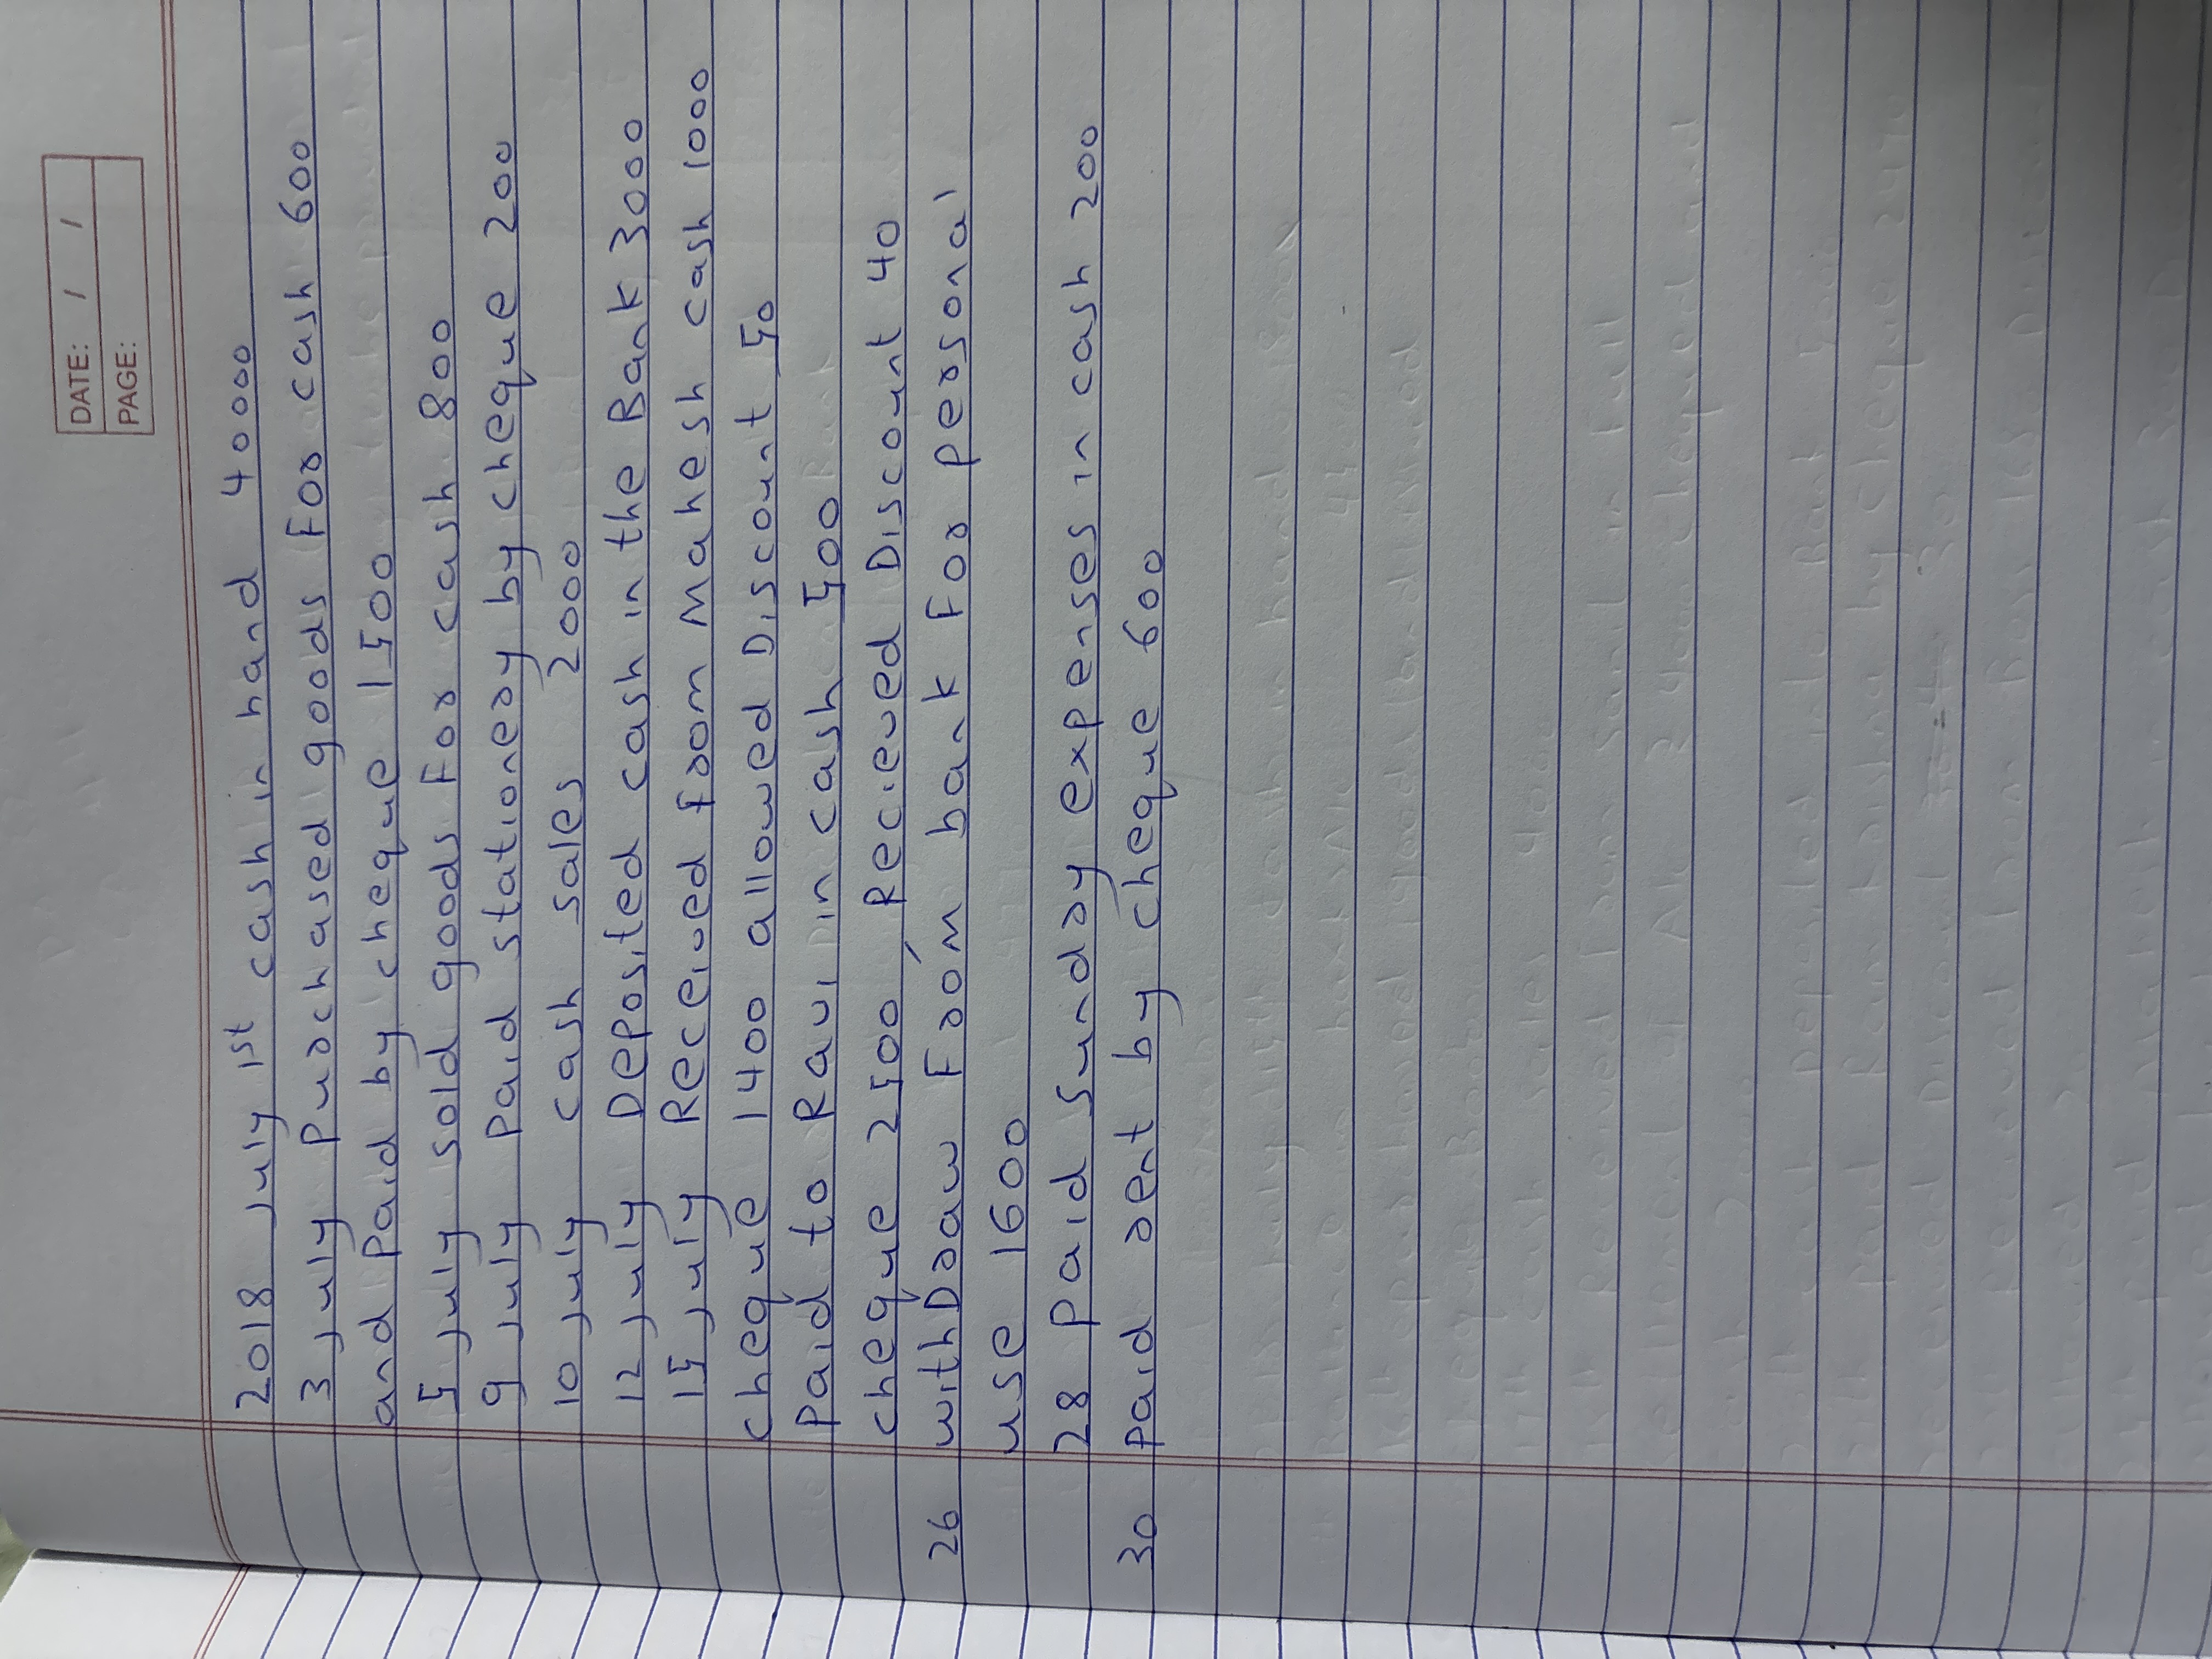 DATE: / /
PAGE:
2018 July 1st cash in hand 40000
3 July Purchased goods For cash 600
and Paid by cheque 1500
5 July sold goods For cash 800
9 July Paid stationery by cheque 200
10 July cash sales 2000
12 July Deposited cash in the Bank 3000
15 July Received from Mahesh cash 1000
cheque 1400 allowed Discount 50
Paid to Ravi in cash 500
cheque 2500, Recieved Discount 40
26 withDraw From bank For personal
use 1600
28 Paid Sundry expenses in cash 200
30 paid rent by cheque 600